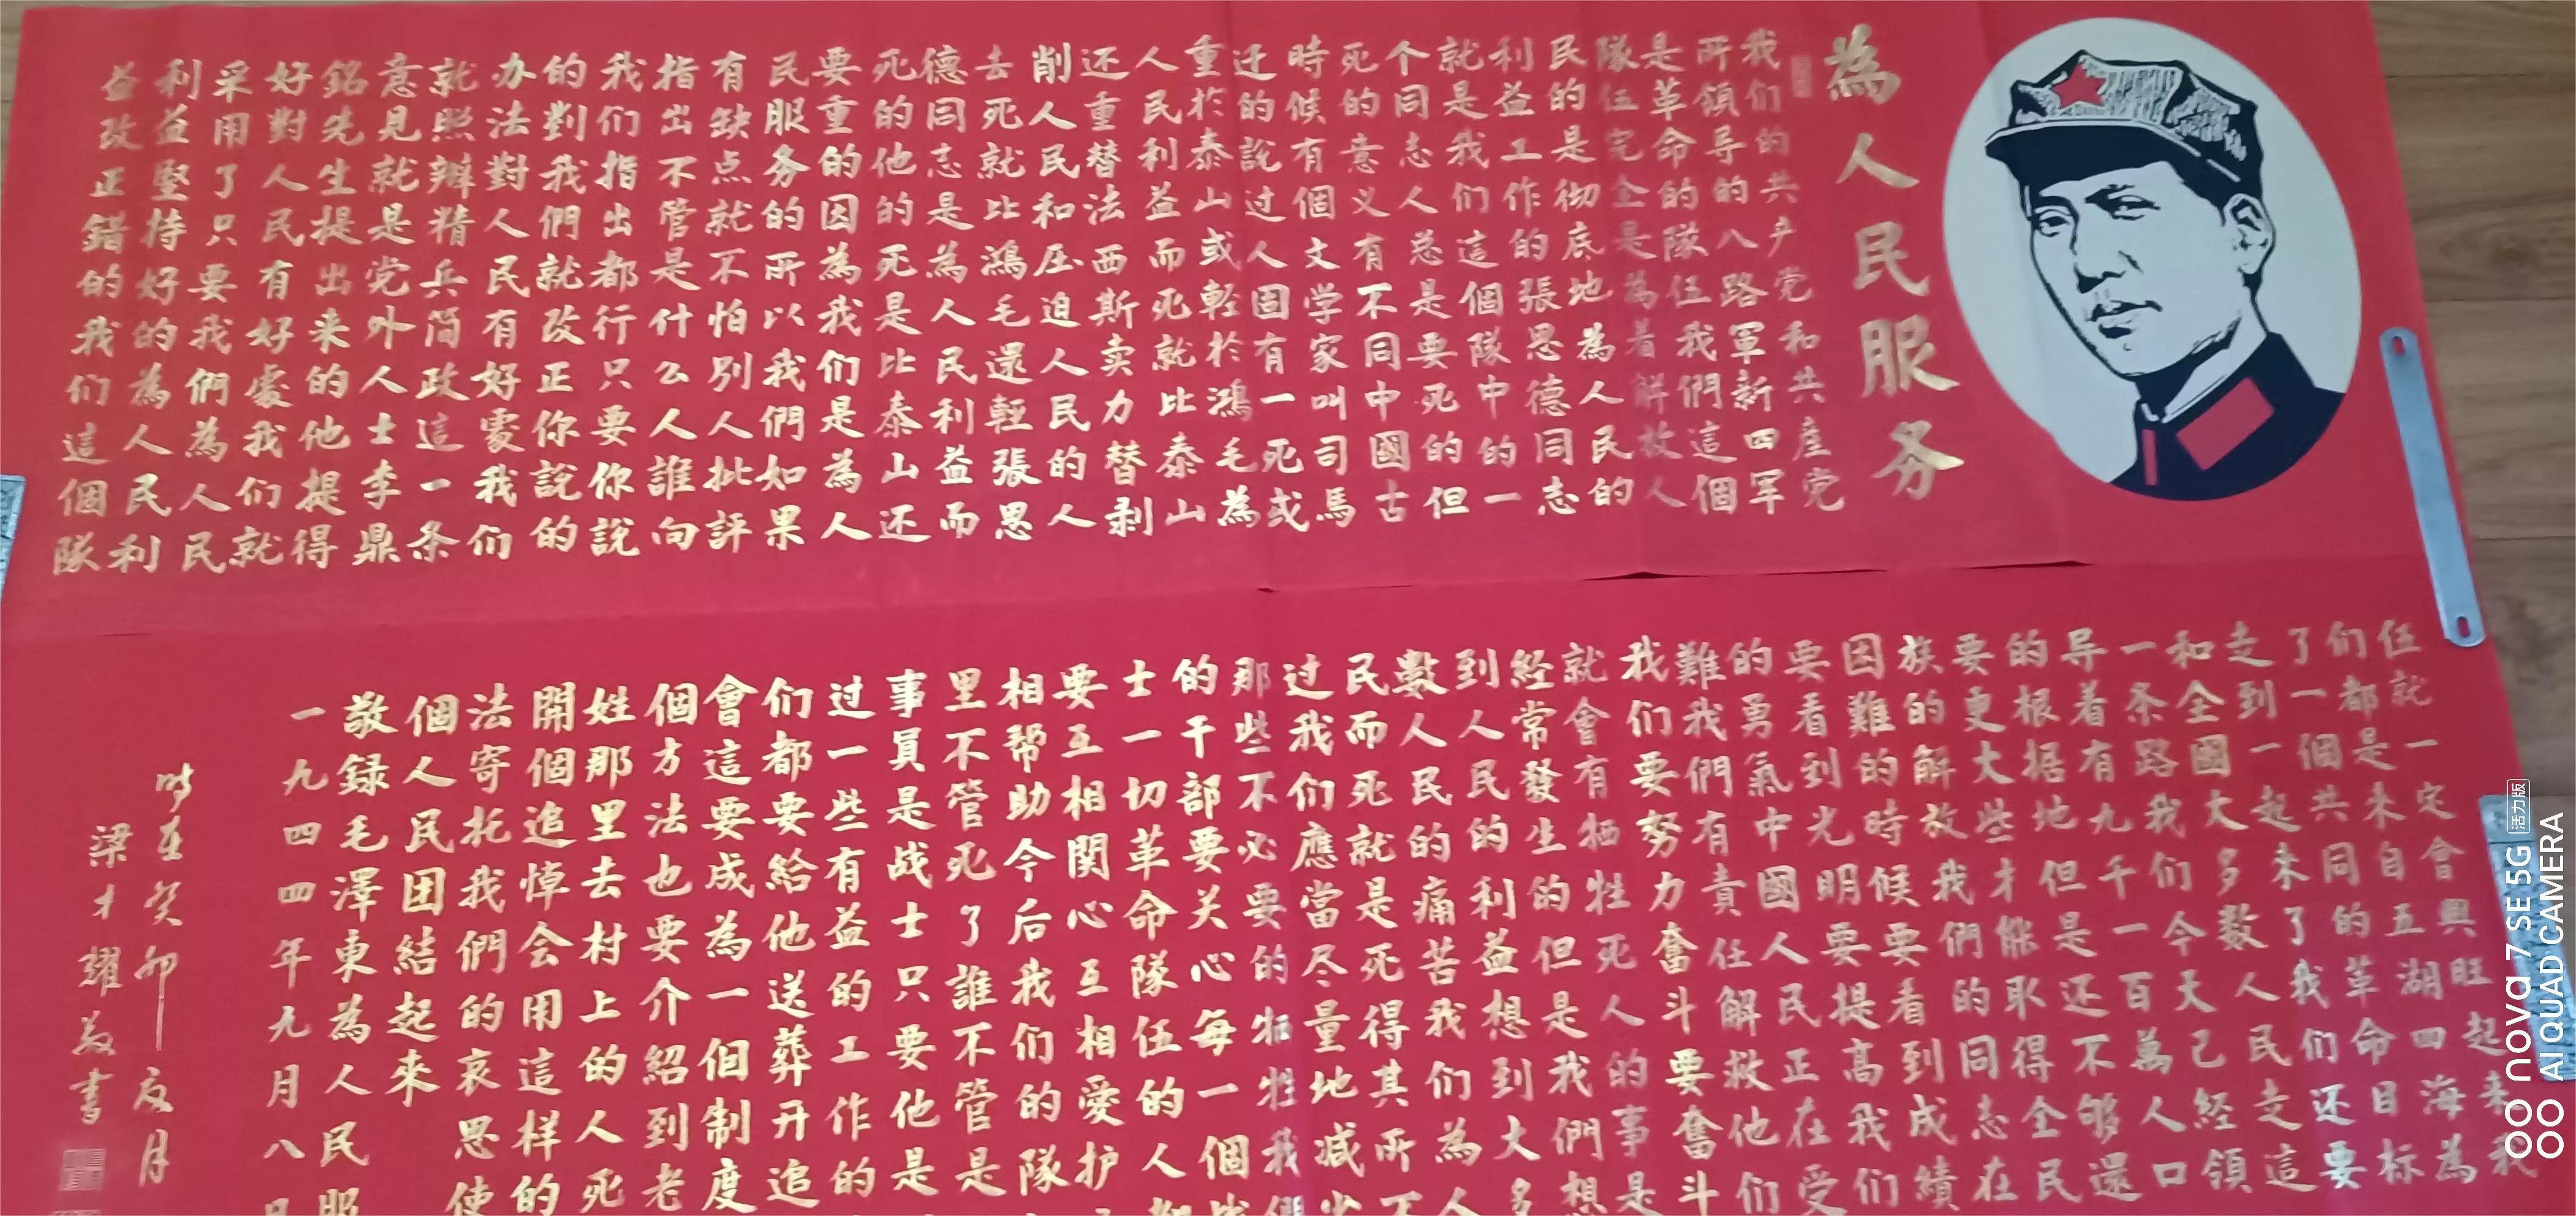 為人民服务
我们的共产党和共產党
所領导的八路軍新四軍
是革命的隊伍我們這個
隊伍完全是為着解放人
民的是彻底地為人民的
利益工作的張思德同志
就是我们這個隊中的一
个同志人总是要死的但
死的意义有不同中國古
時候有個文学家叫司馬
迁的說过人固有一死或
重於泰山或輕於鴻毛為
人民利益而死就比泰山
还重替法西斯卖力替剥
削人民和压迫人民的人
去死就比鴻毛還輕張思
德同志是為人民利益而
死的他的死是比泰山还
要重的因為我们是為人
民服务的所以我們如果
有缺点就不怕別人批評
指出不管是什么人誰向
我们指出都行只要你說
的對我們就改正你說的
办法對人民有好處我们
就照辦精兵简政這一条
意見就是党外人士李鼎
銘先生提出来的他提得
好對人民有好處我们就
采用了只要我們為人民
利益堅持好的為人民利
益改正錯的我们這個隊
伍就一定會興旺起来我
们都是来自五湖四海為
了一個共同的革命目标
走到一起来了我们还要
和全國大多数人民走這
一条路我们今天已經領
导着有九千一百萬人口
的根据地但是还不够還
要更大些才能取得全民
族的解放我們的同志在
因難的時候要看到成績
要看到光明要提高我们
的勇氣中國人民正在受
難我們有責任解救他们
我们要努力奮斗要奮斗
就會有牺牲死人的事是
經常發生的但是我們想
到人民的利益想到大多
數人民的痛苦我們為人
民而死就是死得其所不
过我们應當尽量地減少
那些不必要的牺牲我們
的干部要关心每一個战
士一切革命隊伍的人都
要互相関心互相愛护
相帮助今后我们的隊
里不管死了誰不管是
事員是战士只要他是
过一些有益的工作的
们都要給他送葬开追
會這要成為一個制度
個方法也要介紹到老
姓那里去村上的人死
開個追悼会用這樣的
法寄托我們的哀思使
個人民团結起來
敬録毛澤東為人民服
一九四四年九月八日
時在癸卯夏月
梁才耀敬書
nova 7 SE 5G 活力版
AI QUAD CAMERA